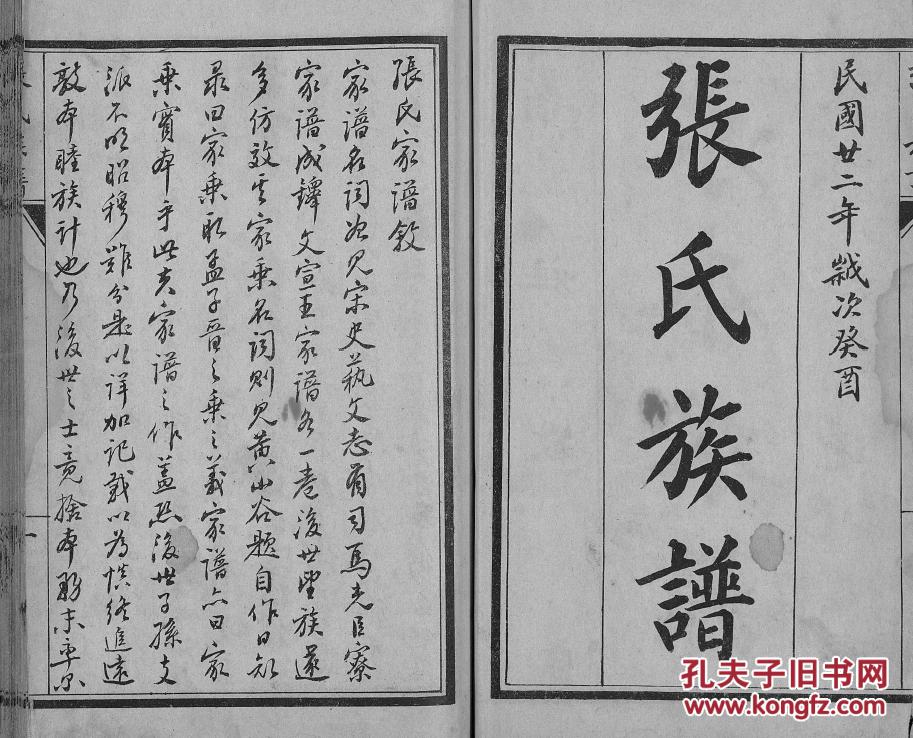 民國廿二年歲次癸酉
張氏族譜
張氏家譜敘
家譜名詞始見宋史藝文志有司馬光臣寮
家譜成鐸文宣王家譜各一卷後世望族遂
多仿效其家乘名詞則見黃山谷題自作日知
录曰家乘取孟子晉之乘之義家譜亦曰家
乘實本乎此夫家譜之作蓋恐後世子孫支
派不明昭穆難分是以详加記載以為慎終追遠
敦本睦族計也乃後世之士竟捨本務末事
孔夫子旧书网
www.kongfz.com